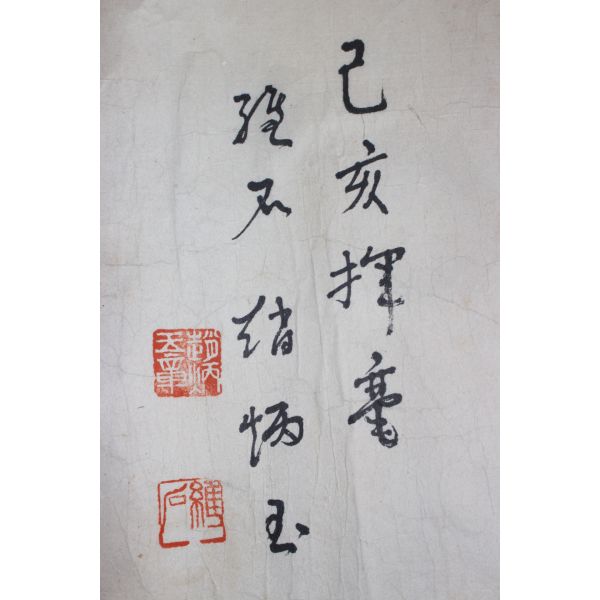 己亥揮毫
維石 趙炳玉
趙炳玉章
維石